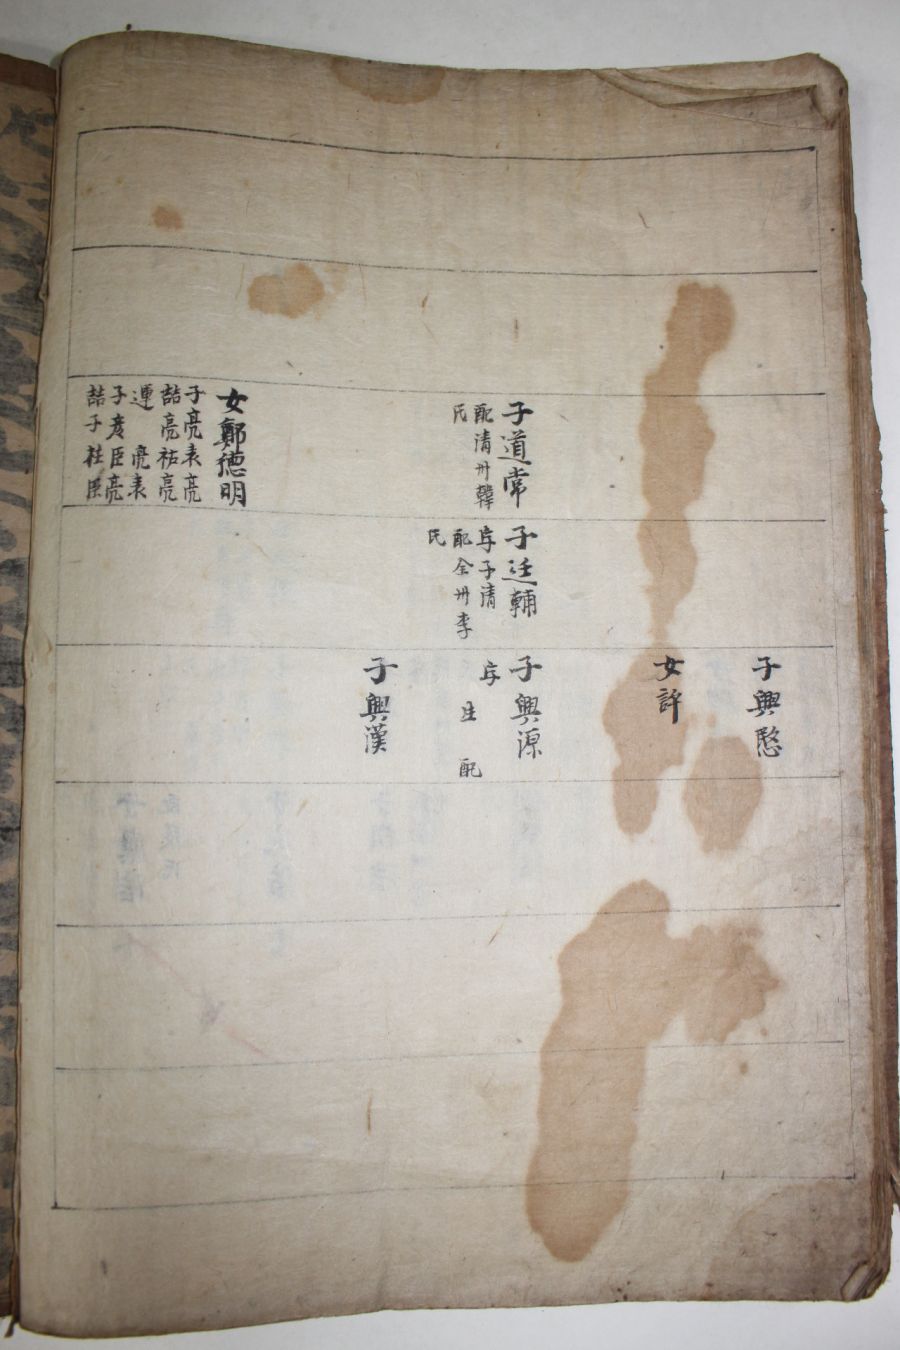 子道常
配清州韓
氏
女鄭德明
子亮表亮
喆亮祐亮
運 亮表
子彦臣亮
喆子柱臣
子廷輔
字子清
配全州李
氏
子興愍
女許
子興源
字
生
配
子興漢